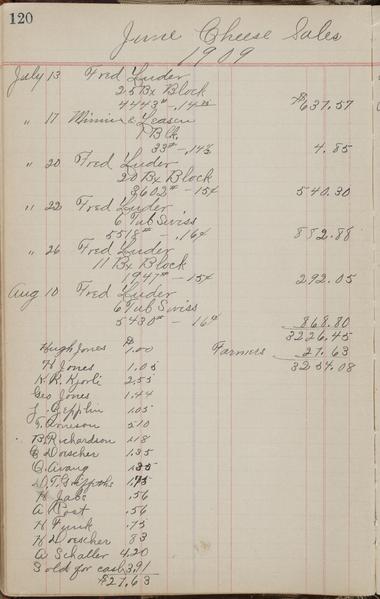 120
June Cheese Sales
1909
July 13 Fred Luder
25 Bx Block
4443# - .14 35 $637.57
" 17
1 Blk.
33# - .14¾ 4.85
" 20 Fred Luder
20 Bx Block
3602# - 15¢ 540.30
" 22 Fred Luder
6 Tub Swiss
5518# - .16¢ 882.88
" 26 Fred Luder
11 Bx Block
1947# - 15¢ 292.05
Aug 10 Fred Luder
6 Tub Swiss
5430# - 16¢ 868.80
3226.45
Hugh Jones 1.00 Farmers 27.63
H Jones 1.05 3254.08
K. R. 2.55
Geo Jones 1.44
J. Zepplin 1.05
T. Arneson 5.10
B. Richardson 1.18
Doescher 1.35
O. Avang 1.35
D. T. Griffiths 1.75
H Jabs .56
A Post .56
H Funk .75
H Doescher 83
A Schaller 4.20
Sold for cash 3.91
$27.63